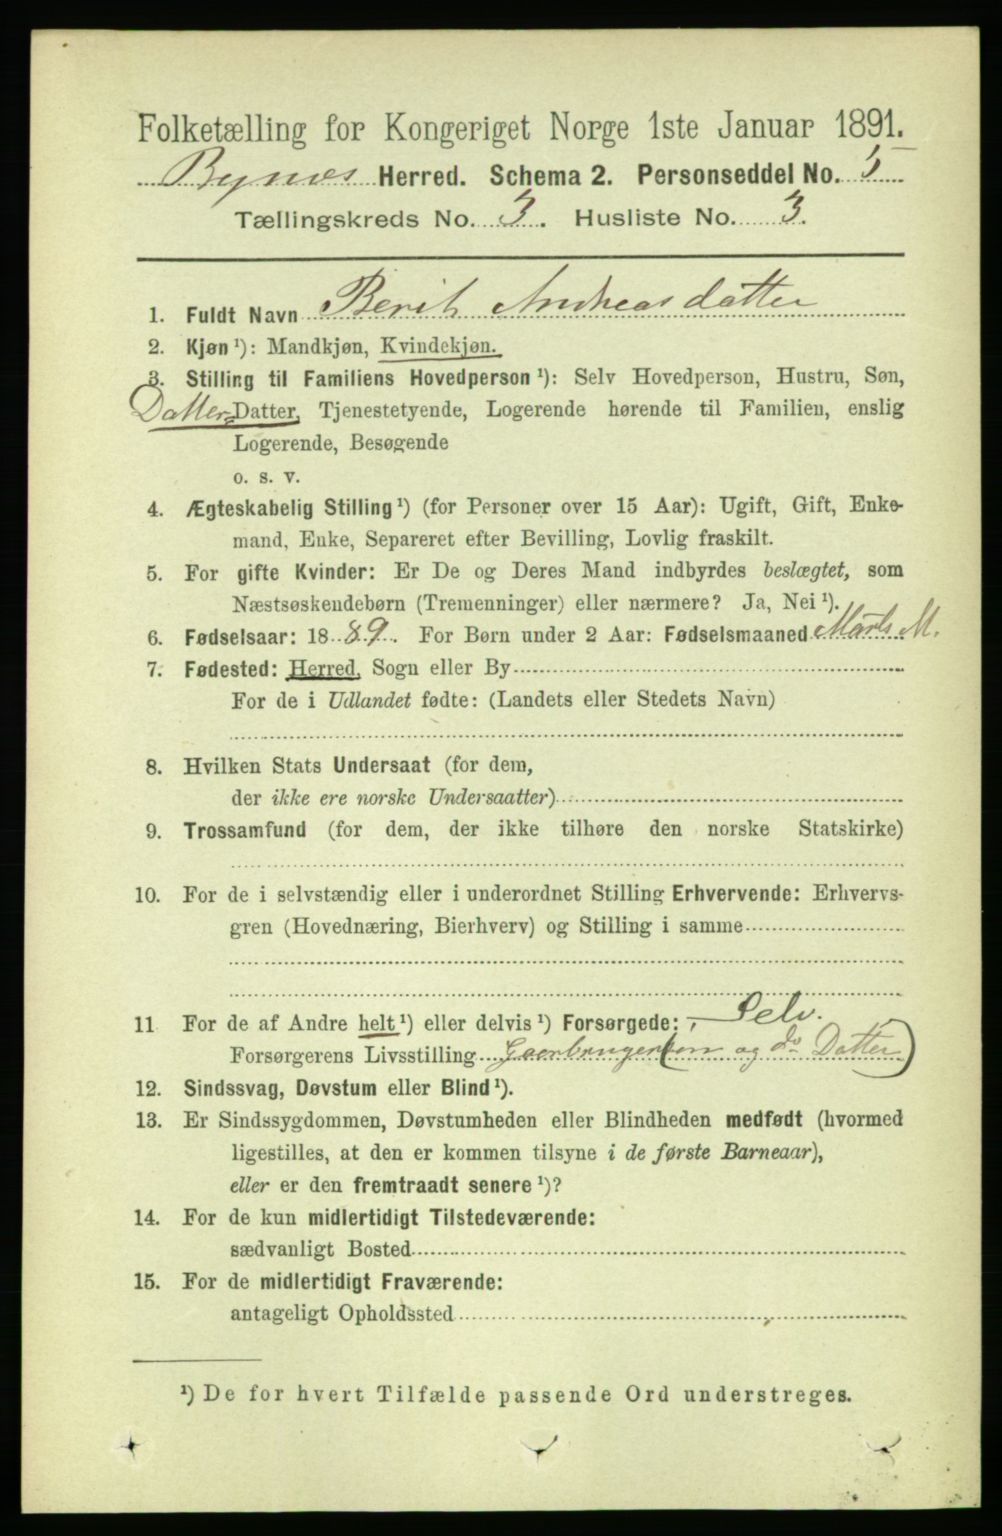 Folketælling for Kongeriget Norge 1ste Januar 1891.
Bynæs Herred. Schema 2. Personseddel No. 5
Tællingskreds No. 3. Husliste No. 3.
1. Fuldt Navn Berit Andreasdatter
2. Kjøn ¹): Mandkjøn, Kvindekjøn.
3. Stilling til Familiens Hovedperson ¹): Selv Hovedperson, Hustru, Søn,
Datter, Datter, Tjenestetyende, Logerende hørende til Familien, enslig
Logerende, Besøgende
o. s. v.
4. Ægteskabelig Stilling ¹) (for Personer over 15 Aar): Ugift, Gift, Enke-
mand, Enke, Separeret efter Bevilling, Lovlig fraskilt.
5. For gifte Kvinder: Er De og Deres Mand indbyrdes beslægtet, som
Næstsøskendebørn (Tremenninger) eller nærmere? Ja, Nei ¹).
6. Fødselsaar: 1889. For Børn under 2 Aar: Fødselsmaaned Marts M.
7. Fødested: Herred, Sogn eller By
For de i Udlandet fødte: (Landets eller Stedets Navn)
8. Hvilken Stats Undersaat (for dem,
der ikke ere norske Undersaatter)
9. Trossamfund (for dem, der ikke tilhøre den norske Statskirke)
10. For de i selvstændig eller i underordnet Stilling Erhvervende: Erhvervs-
gren (Hovednæring, Bierhverv) og Stilling i samme
11 For de af Andre helt ¹) eller delvis ¹) Forsørgede: Selv.
Forsørgerens Livsstilling Gaarbruger (en og do Datter)
12. Sindssvag, Døvstum eller Blind ¹).
13. Er Sindssygdommen, Døvstumheden eller Blindheden medfødt (hvormed
ligestilles, at den er kommen tilsyne i de første Barneaar),
eller er den fremtraadt senere ¹)?
14. For de kun midlertidigt Tilstedeværende:
sædvanligt Bosted
15. For de midlertidigt Fraværende:
antageligt Opholdssted
¹) De for hvert Tilfælde passende Ord understreges.